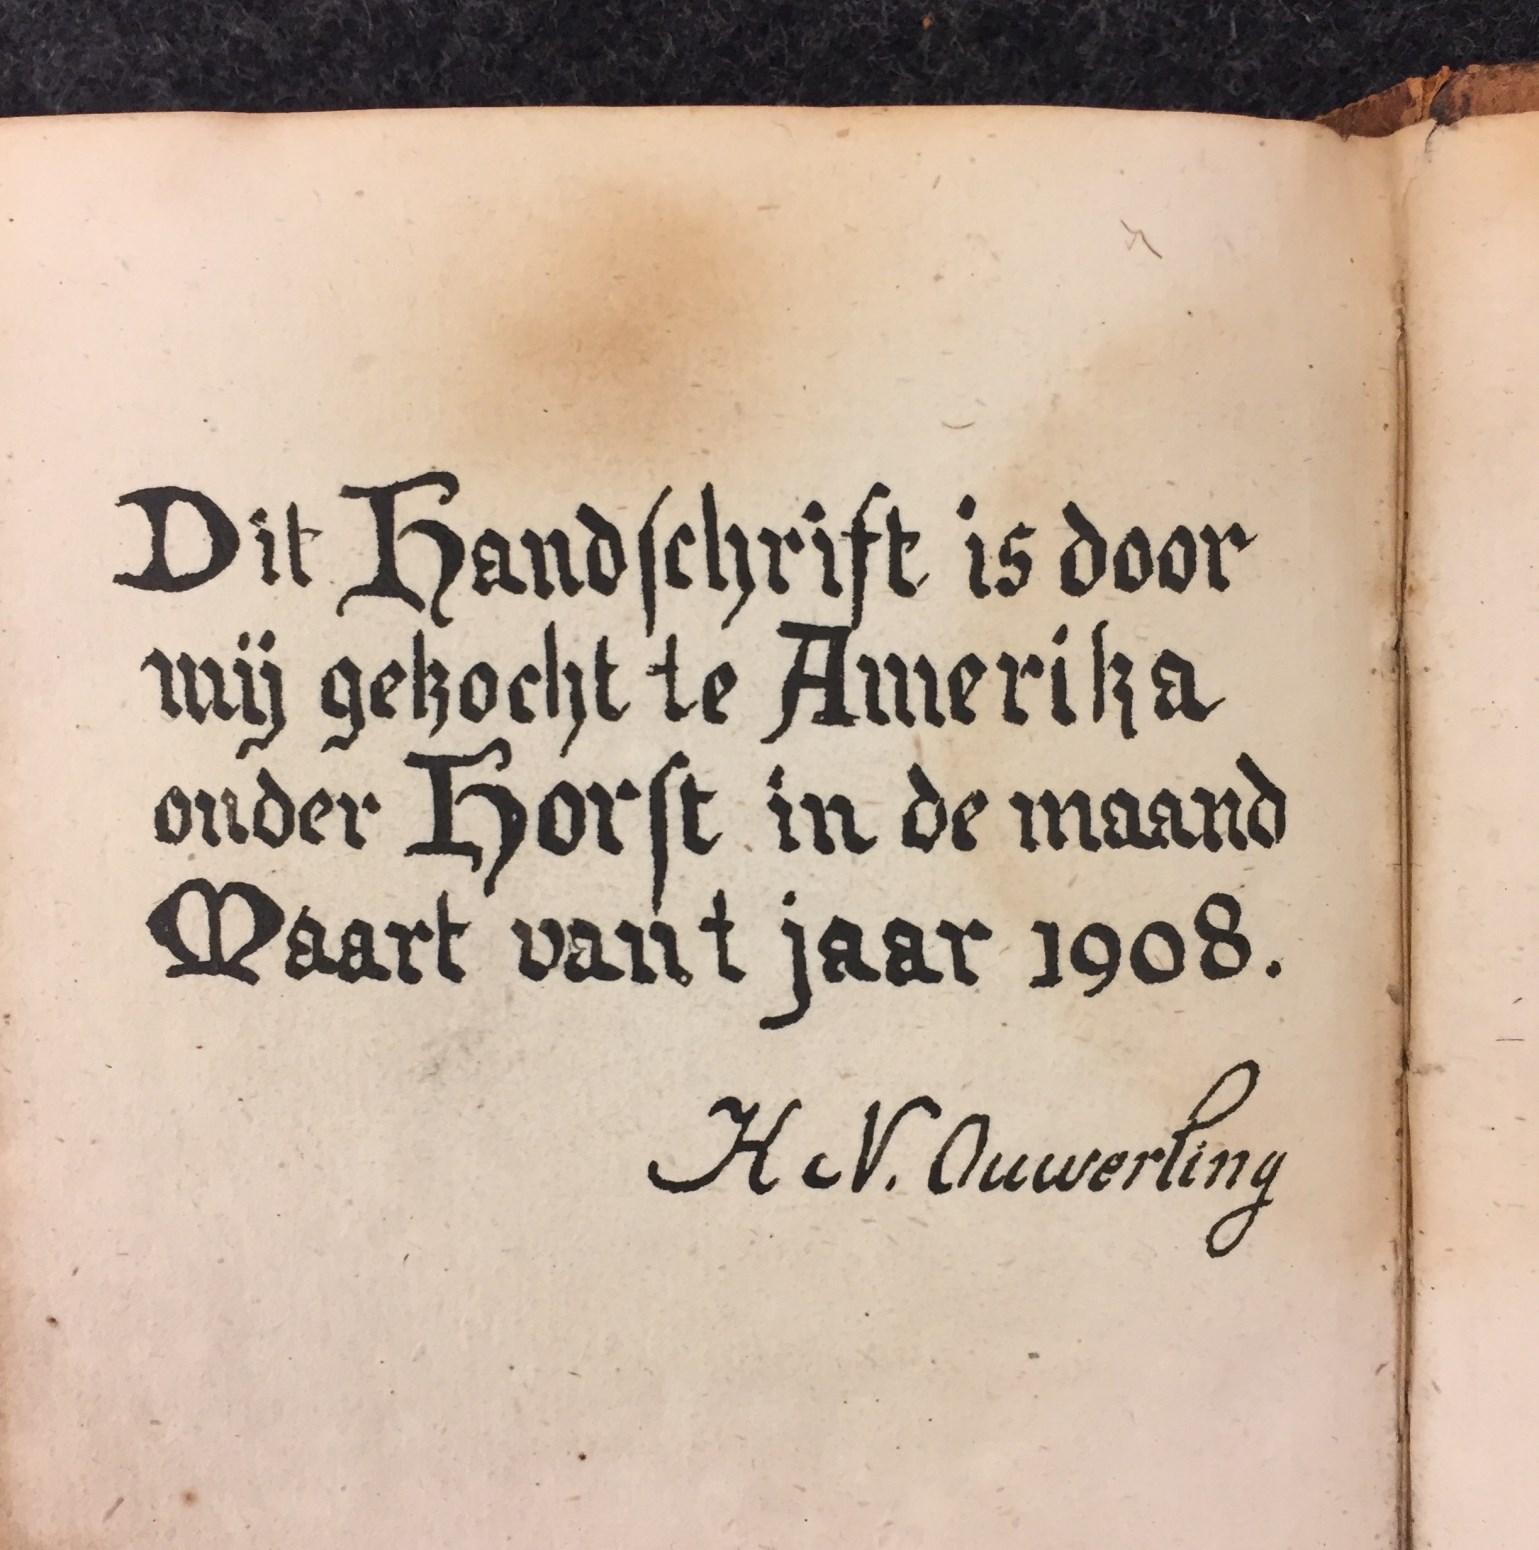 Dit Handschrift is door
mij gekocht te Amerika
onder Horst in de maand
Maart van t jaar 1908.
H N. Ouwerling